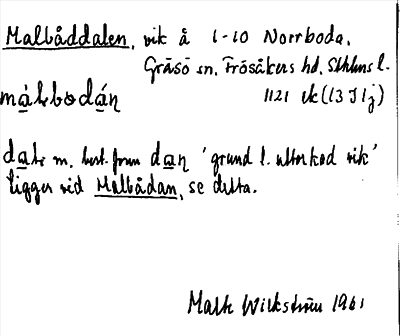 Malbåddalen, vik å 1-10 Norrboda,
Gräsö sn, Frösåkers hd, Sthlms l.
málbodán 1121 ek (13 I 1j)
dal m. best. form dan 'grund l. uttorkad vik'
ligger vid Malbådan, se detta.
Mats Wilkström 1961